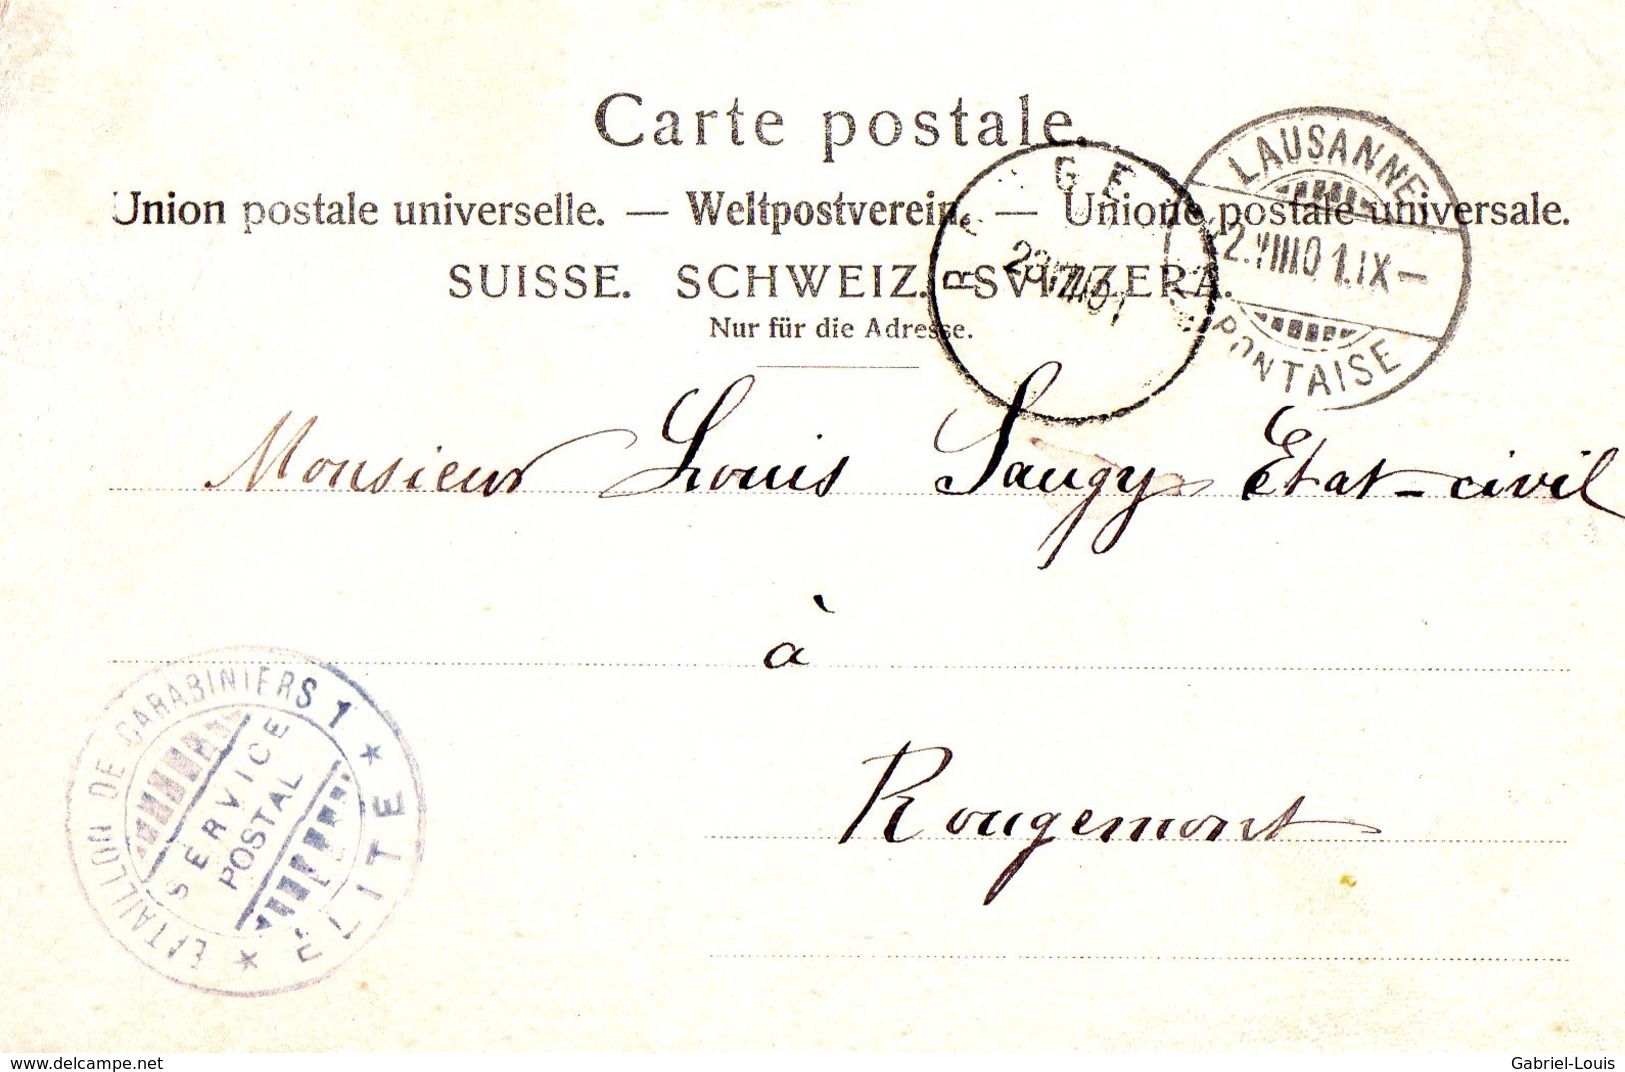 Carte postale.
Union postale universelle. — Weltpostverein. — Unione postale universale.
SUISSE. SCHWEIZ. SVIZZERA.
Nur für die Adresse.
LAUSANNE
PONTAISE
Monsieur Louis Saugy Etat-civil
à
Rougemont
BATAILLON DE CARABINIERS 1
SERVICE
POSTAL
ELITE
delcampe.net
Gabriel-Louis